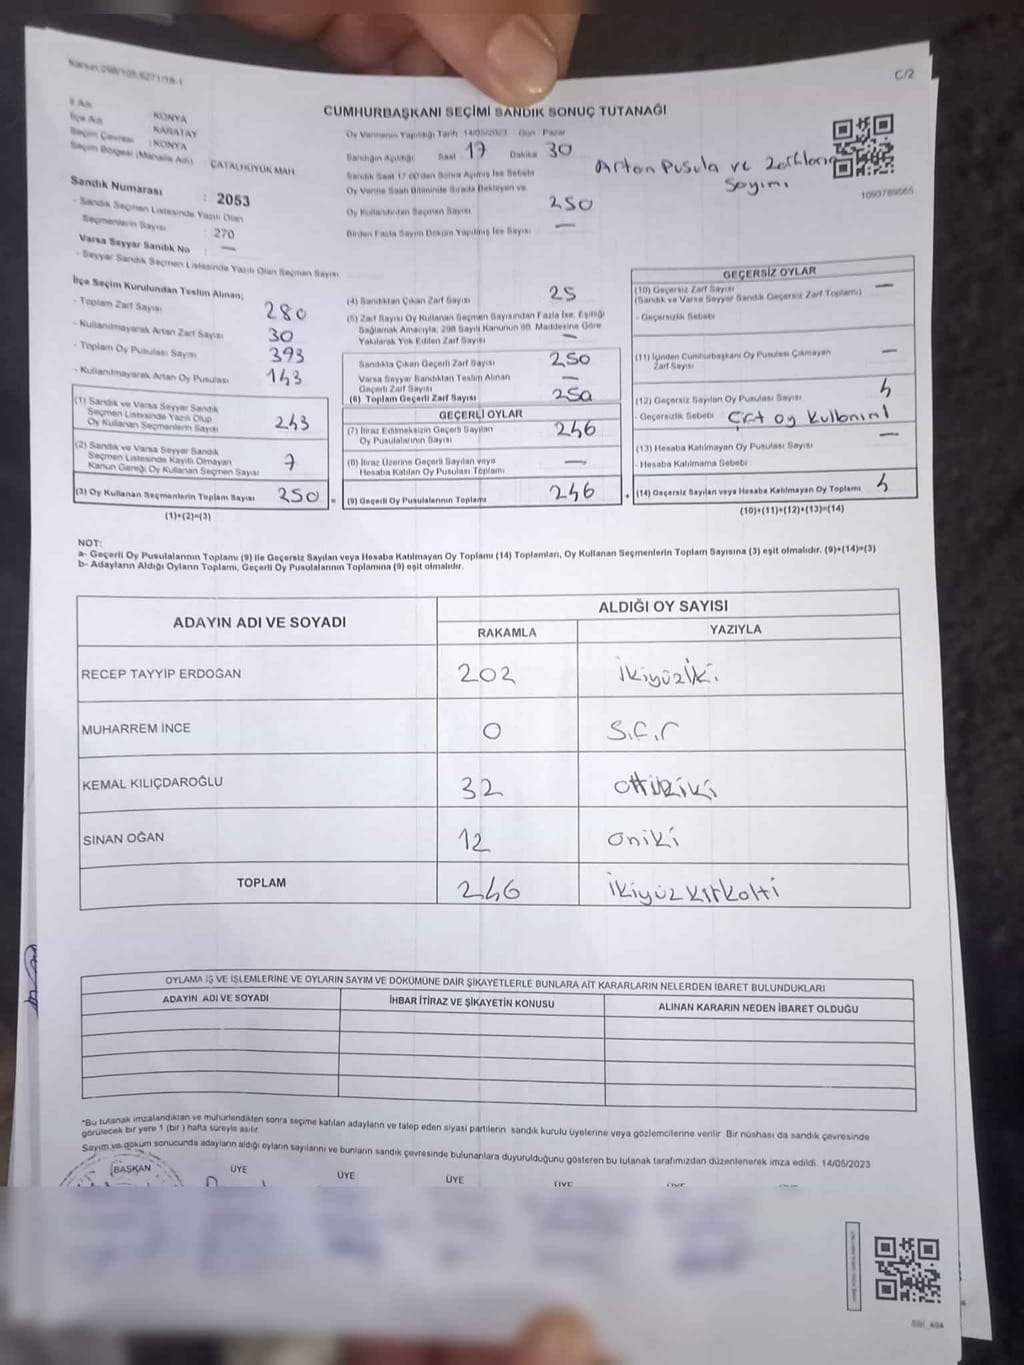 Kanun:298/105-6271/16-1
C/2
CUMHURBAŞKANI SEÇİMİ SANDIK SONUÇ TUTANAĞI
İl Adı KONYA
İlçe Adı KARATAY
Seçim Çevresi :KONYA
Seçim Bölgesi (Mahalle Adı) ÇATALHÜYÜK MAH.
Sandık Numarası : 2053
- Sandık Seçmen Listesinde Yazılı Olan
Seçmenlerin Sayısı : 270
Varsa Seyyar Sandık No : —
- Seyyar Sandık Seçmen Listesinde Yazılı Olan Seçmen Sayısı
Oy Vermenin Yapıldığı Tarih 14/05/2023 Gün Pazar
Sandığın Açıldığı Saat 17 Dakika 30
Sandık Saat 17:00'den Sonra Açılmış İse Sebebi
Oy Verme Saati Bitiminde Sırada Bekleyen ve
Oy Kullandırılan Seçmen Sayısı 250
Birden Fazla Sayım Döküm Yapılmış İse Sayısı —
Artan Pusula ve Zarfların
Sayımı
1093789565
İlçe Seçim Kurulundan Teslim Alınan;
- Toplam Zarf Sayısı 280
- Kullanılmayarak Artan Zarf Sayısı 30
- Toplam Oy Pusulası Sayısı 393
- Kullanılmayarak Artan Oy Pusulası 143
(1) Sandık ve Varsa Seyyar Sandık
Seçmen Listesinde Yazılı Olup
Oy Kullanan Seçmenlerin Sayısı 243
(2) Sandık ve Varsa Seyyar Sandık
Seçmen Listesinde Kayıtlı Olmayan
Kanun Gereği Oy Kullanan Seçmen Sayısı 7
(3) Oy Kullanan Seçmenlerin Toplam Sayısı 250 =
(1)+(2)=(3)
(4) Sandıktan Çıkan Zarf Sayısı 25
(5) Zarf Sayısı Oy Kullanan Seçmen Sayısından Fazla İse, Eşitliği
Sağlamak Amacıyla, 298 Sayılı Kanunun 98. Maddesine Göre
Yakılarak Yok Edilen Zarf Sayısı —
Sandıkta Çıkan Geçerli Zarf Sayısı 250
Varsa Seyyar Sandıktan Teslim Alınan
Geçerli Zarf Sayısı —
(6) Toplam Geçerli Zarf Sayısı 250
GEÇERLİ OYLAR
(7) İtiraz Edilmeksizin Geçerli Sayılan
Oy Pusulalarının Sayısı 246
(8) İtiraz Üzerine Geçerli Sayılan veya
Hesaba Katılan Oy Pusulası Toplamı —
(9) Geçerli Oy Pusulalarının Toplamı 246 +
GEÇERSİZ OYLAR
(10) Geçersiz Zarf Sayısı —
(Sandık ve Varsa Seyyar Sandık Geçersiz Zarf Toplamı)
- Geçersizlik Sebebi
(11) İçinden Cumhurbaşkanı Oy Pusulası Çıkmayan
Zarf Sayısı —
(12) Geçersiz Sayılan Oy Pusulası Sayısı 4
- Geçersizlik Sebebi Çift oy kullanımı
(13) Hesaba Katılmayan Oy Pusulası Sayısı —
- Hesaba Katılmama Sebebi
(14) Geçersiz Sayılan veya Hesaba Katılmayan Oy Toplamı 4
(10)+(11)+(12)+(13)=(14)
NOT:
a- Geçerli Oy Pusulalarının Toplamı (9) ile Geçersiz Sayılan veya Hesaba Katılmayan Oy Toplamı (14) Toplamları, Oy Kullanan Seçmenlerin Toplam Sayısına (3) eşit olmalıdır. (9)+(14)=(3)
b- Adayların Aldığı Oyların Toplamı, Geçerli Oy Pusulalarının Toplamına (9) eşit olmalıdır.
ADAYIN ADI VE SOYADI ALDIĞI OY SAYISI
RAKAMLA YAZIYLA
RECEP TAYYİP ERDOĞAN 202 İkiyüziki
MUHARREM İNCE 0 Sıfır
KEMAL KILIÇDAROĞLU 32 Otuziki
SİNAN OĞAN 12 Oniki
TOPLAM 246 İkiyüzkırkaltı
OYLAMA İŞ VE İŞLEMLERİNE VE OYLARIN SAYIM VE DÖKÜMÜNE DAİR ŞİKAYETLERLE BUNLARA AİT KARARLARIN NELERDEN İBARET BULUNDUKLARI
ADAYIN ADI VE SOYADI İHBAR İTİRAZ VE ŞİKAYETİN KONUSU ALINAN KARARIN NEDEN İBARET OLDUĞU
*Bu tutanak imzalandıktan ve mühürlendikten sonra seçime katılan adayların ve talep eden siyasi partilerin sandık kurulu üyelerine veya gözlemcilerine verilir. Bir nüshası da sandık çevresinde
görülecek bir yere 1 (bir) hafta süreyle asılır.
Sayım ve döküm sonucunda adayların aldığı oyların sayılarını ve bunların sandık çevresinde bulunanlara duyurulduğunu gösteren bu tutanak tarafımızdan düzenlenerek imza edildi. 14/05/2023
BAŞKAN ÜYE ÜYE ÜYE ÜYE ÜYE